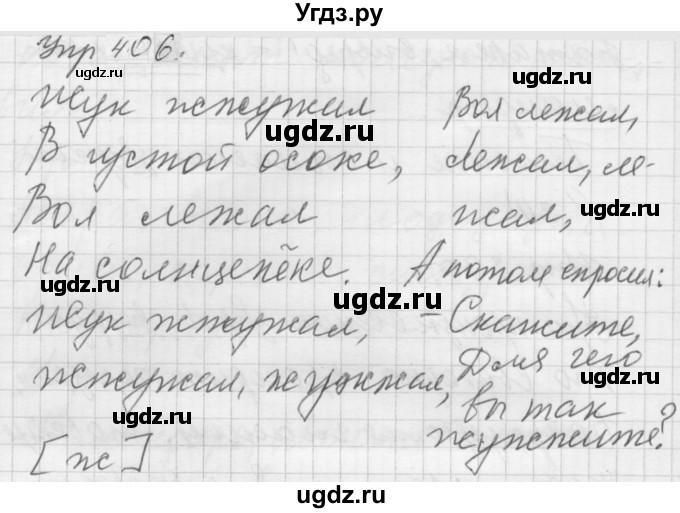 Угдз.ру
Упр 406.
Жук жужжал
В густой осоке,
Вол лежал
На солнцепёке.
Жук жужжал,
жужжал, жужжал,
[ж]
Вол лежал,
Лежал, ле-
жал,
А потом спросил:
– Скажите,
Для чего
вы так
жужжите?
ugdz.ru
ugdz.ru
ugdz.ru
ugdz.ru
ugdz.ru
ugdz.ru
ugdz.ru
ugdz.ru
ugdz.ru
ugdz.ru